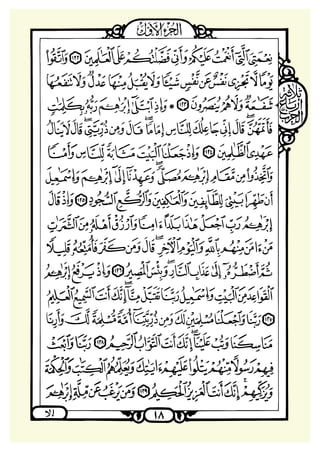 الجزء الأول
نِعْمَتِيَ اَلتِے أَنْعَمْتُ عَلَيْكُمْ وَأَنِّے فَضَّلْتُكُمْ عَلَى اَلْعَٰلَمِينَ ١٢١ وَاتَّقُواْ
يَوْماً لَّا تَجْزِے نَفْسٌ عَن نَّفْسٍ شَيْـٔاً وَلَا يُقْبَلُ مِنْهَا عَدْلٌ وَلَا تَنفَعُهَا
شَفَٰعَةٌ وَلَا هُمْ يُنصَرُونَ ١٢٢ وَإِذِ اِبْتَلَىٰٓ إِبْرَٰهِيمَ رَبُّهُۥ بِكَلِمَٰتٍ
فَأَتَمَّهُنَّ قَالَ إِنِّے جَاعِلُكَ لِلنَّاسِ إِمَاماً قَالَ وَمِن ذُرِّيَّتِے قَالَ لَا يَنَالُ
عَهْدِيَ اَلظَّٰلِمِينَ ١٢٣ وَإِذْ جَعَلْنَا اَلْبَيْتَ مَثَابَةً لِّلنَّاسِ وَأَمْناً
وَاتَّخَذُواْ مِن مَّقَامِ إِبْرَٰهِيمَ مُصَلّىً وَعَهِدْنَآ إِلَىٰٓ إِبْرَٰهِيمَ وَإِسْمَٰعِيلَ
أَن طَهِّرَا بَيْتِيَ لِلطَّآئِفِينَ وَالْعَٰكِفِينَ وَالرُّكَّعِ اِلسُّجُودِ ١٢٤ وَإِذْ قَالَ
إِبْرَٰهِيمُ رَبِّ اِجْعَلْ هَٰذَا بَلَداً ءَامِناً وَارْزُقْ أَهْلَهُۥ مِنَ اَلثَّمَرَٰتِ
مَنْ ءَامَنَ مِنْهُم بِاللَّهِ وَالْيَوْمِ اِلَاخِرِ قَالَ وَمَن كَفَرَ فَأُمَتِّعُهُۥ قَلِيلاً
ثُمَّ أَضْطَرُّهُۥٓ إِلَىٰ عَذَابِ اِلنَّارِ وَبِيسَ اَلْمَصِيرُ ١٢٥ وَإِذْ يَرْفَعُ إِبْرَٰهِيمُ
اُلْقَوَاعِدَ مِنَ اَلْبَيْتِ وَإِسْمَٰعِيلُ رَبَّنَا تَقَبَّلْ مِنَّآ إِنَّكَ أَنتَ اَلسَّمِيعُ اُلْعَلِيمُ
١٢٦ رَبَّنَا وَاجْعَلْنَا مُسْلِمَيْنِ لَكَ وَمِن ذُرِّيَّتِنَآ أُمَّةً مُّسْلِمَةً لَّكَ وَأَرِنَا
مَنَاسِكَنَا وَتُبْ عَلَيْنَآ إِنَّكَ أَنتَ اَلتَّوَّابُ اُلرَّحِيمُ ١٢٧ رَبَّنَا وَابْعَثْ
فِيهِمْ رَسُولاً مِّنْهُمْ يَتْلُواْ عَلَيْهِمُۥٓ ءَايَٰتِكَ وَيُعَلِّمُهُمُ اُلْكِتَٰبَ وَالْحِكْمَةَ
وَيُزَكِّيهِمُۥٓ إِنَّكَ أَنتَ اَلْعَزِيزُ اُلْحَكِيمُ ١٢٨ وَمَن يَرْغَبُ عَن مِّلَّةِ إِبْرَٰهِيمَ
ثلاثة أرباع الحزب
١٨